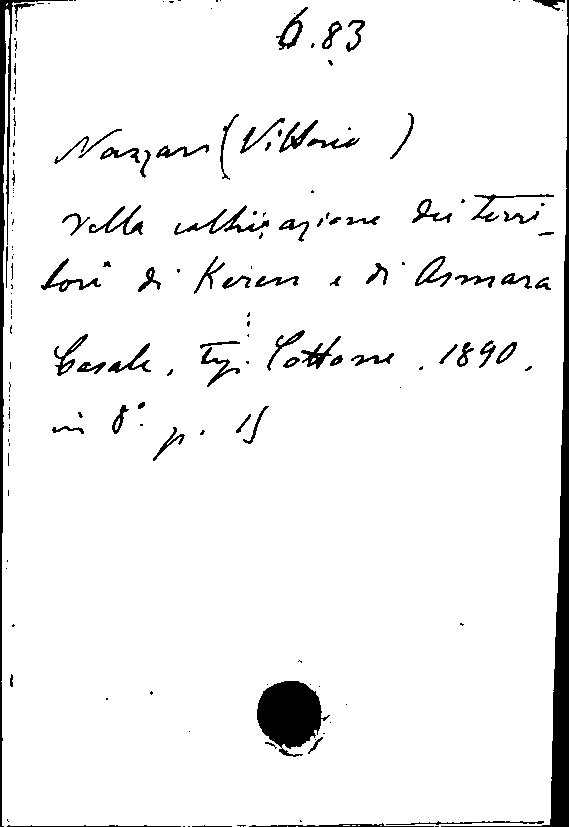 6.83
Nazzari (Vittorio)
Nella coltivazione dei terri-
torî di Keren e di Asmara
Casale, Typ. Cottone, 1890,
in 8° p. 15